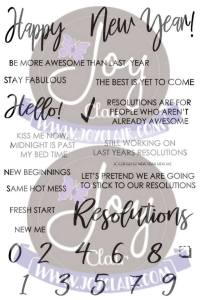 Happy New Year!
BE MORE AWESOME THAN LAST YEAR
STAY FABULOUS
THE BEST IS YET TO COME
Hello!
RESOLUTIONS ARE FOR
PEOPLE WHO AREN'T
ALREADY AWESOME
WWW.JOYCLAIR.COM
KISS ME NOW,
MIDNIGHT IS PAST
MY BED TIME
STILL WORKING ON
LAST YEARS RESOLUTIONS
NEW BEGINNINGS
LET'S PRETEND WE ARE GOING
TO STICK TO OUR RESOLUTIONS
SAME HOT MESS
Joy
FRESH START
Resolutions
NEW ME
Clair
0 2 4 6 8
1 3 5 7 9